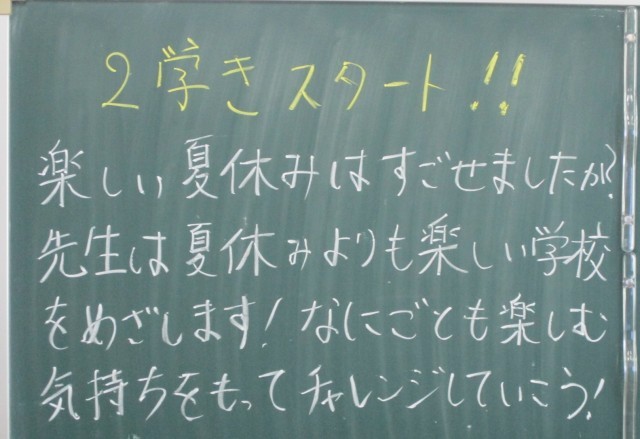 2学きスタート!!
楽しい夏休みはすごせましたか?
先生は夏休みよりも楽しい学校
をめざします!なにごとも楽しむ
気持ちをもってチャレンジしていこう!